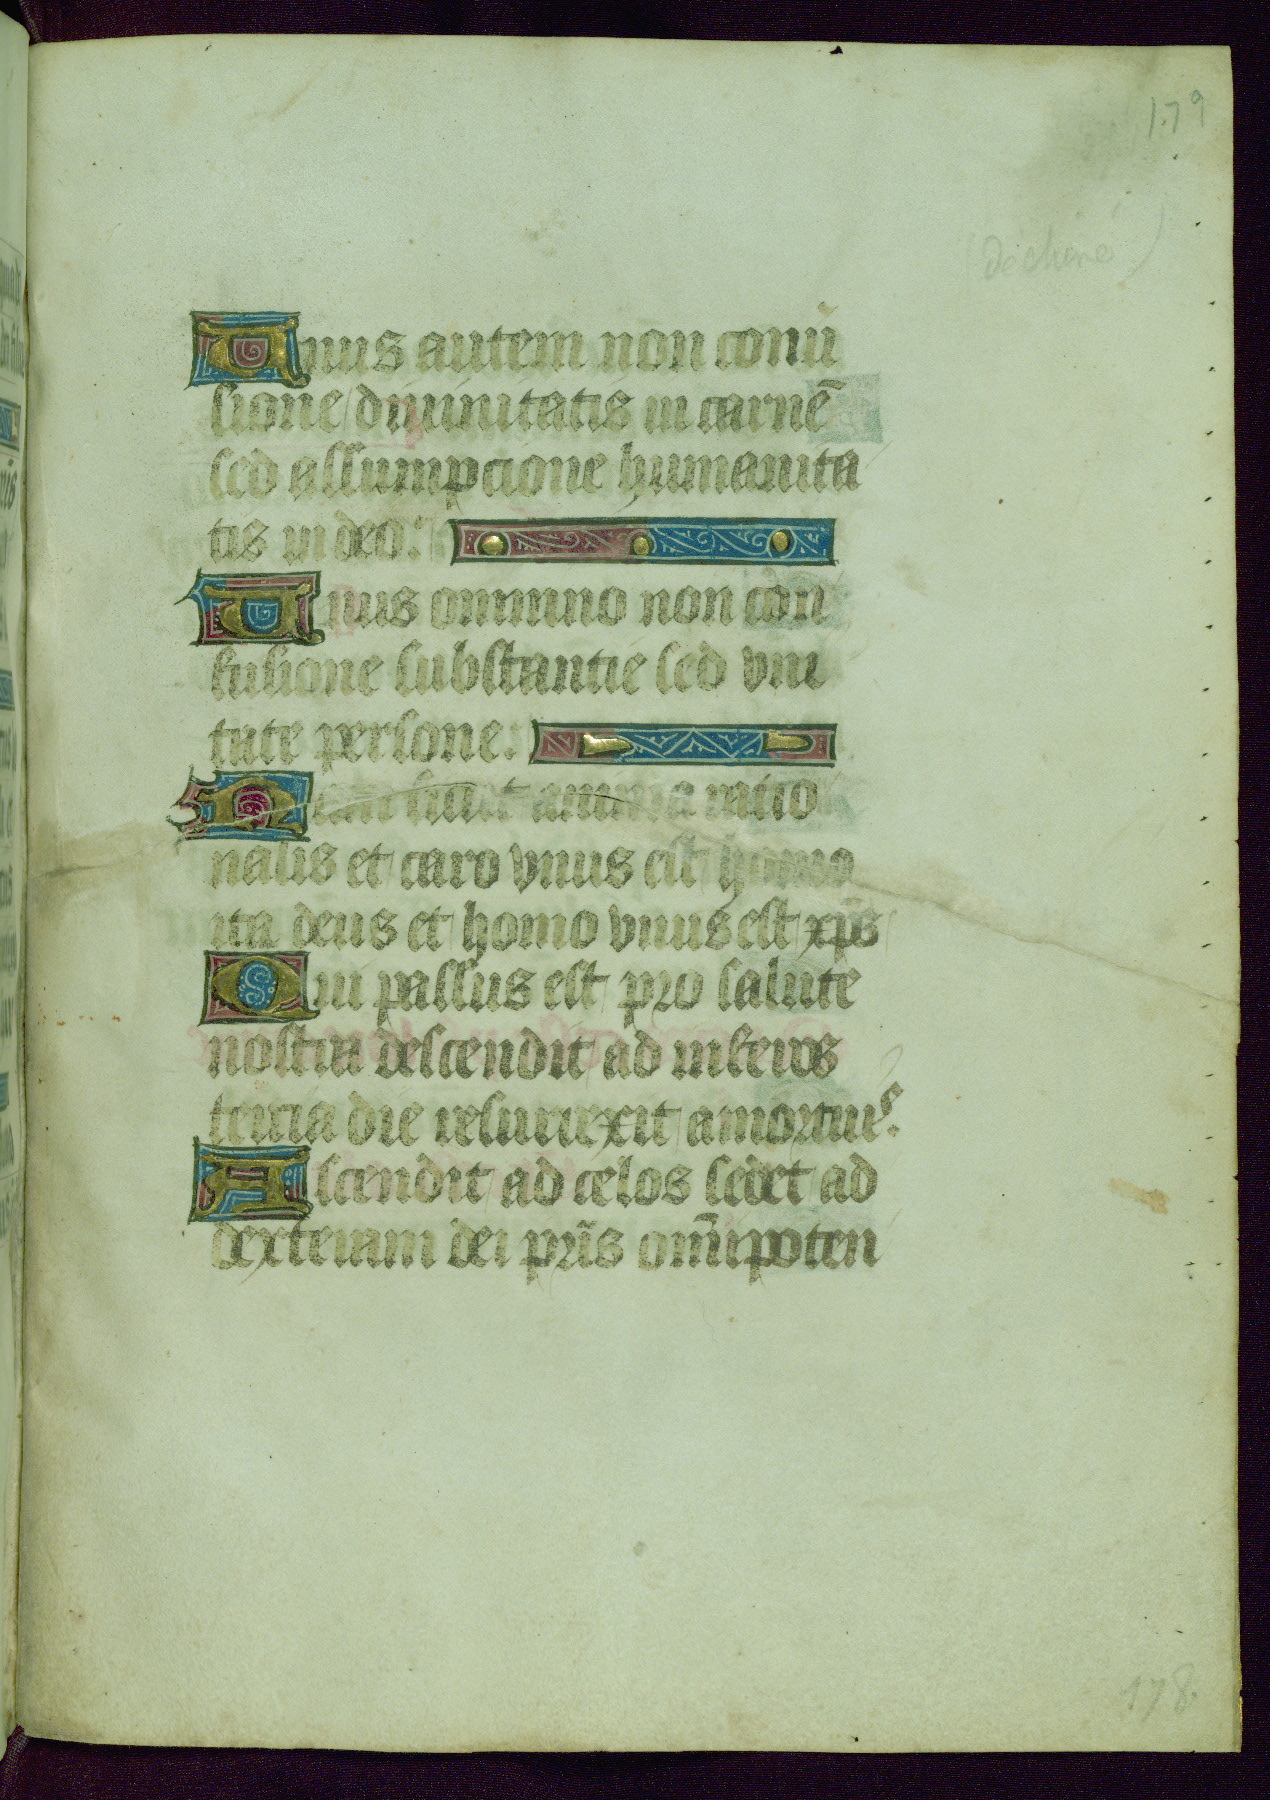 179
(déchiré)
Unus autem non conũ
sione diuinitatis in carnē
sed assumpcione humanita
tis in deo.
Unus omnino non con
fusione substantie sed vni
tate persone.
Nam sicut anima racio
nalis et caro vnus est homo
ita deus et homo vnus est xp̄s
Qui passus est pro salute
nostra descendit ad inferos
tercia die resurrexit a mortuis.
Ascendit ad celos sedet ad
dexteram dei pr̄is om̄ipoten
178.